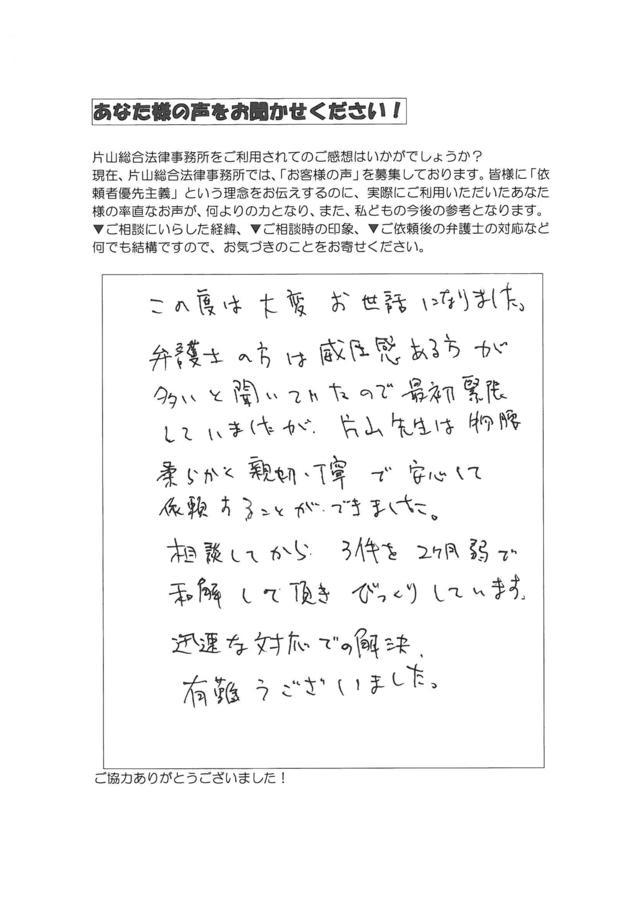 あなた様の声をお聞かせください！
片山総合法律事務所をご利用されてのご感想はいかがでしょうか？
現在、片山総合法律事務所では、「お客様の声」を募集しております。皆様に「依
頼者優先主義」という理念をお伝えするのに、実際にご利用いただいたあなた
様の率直なお声が、何よりの力となり、また、私どもの今後の参考となります。
▼ご相談にいらした経緯、▼ご相談時の印象、▼ご依頼後の弁護士の対応など
何でも結構ですので、お気づきのことをお寄せください。
この度は大変お世話になりました。
弁護士の方は威圧感ある方が
多いと聞いてたので最初緊張
していましたが、片山先生は物腰
柔らかく親切・丁寧で安心して
依頼することができました。
相談してから3件を2ヶ月弱で
和解して頂きびっくりしています。
迅速な対応での解決、
有難うございました。
ご協力ありがとうございました！